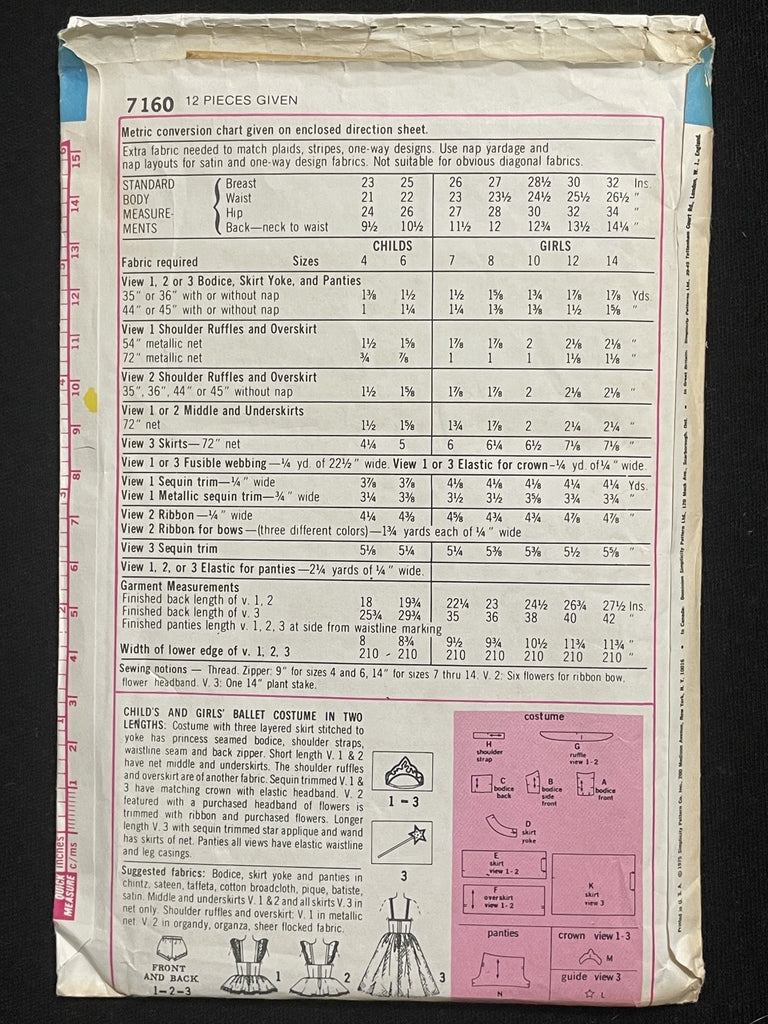 7160 12 PIECES GIVEN
Metric conversion chart given on enclosed direction sheet.
Extra fabric needed to match plaids, stripes, one-way designs. Use nap yardage and
nap layouts for satin and one-way design fabrics. Not suitable for obvious diagonal fabrics.
STANDARD Breast 23 25 26 27 28½ 30 32 Ins.
BODY Waist 21 22 23 23½ 24½ 25½ 26½ "
MEASURE- Hip 24 26 27 28 30 32 34 "
MENTS Back—neck to waist 9½ 10½ 11½ 12 12¾ 13½ 14¼ "
CHILDS GIRLS
Fabric required Sizes 4 6 7 8 10 12 14
View 1, 2 or 3 Bodice, Skirt Yoke, and Panties
35" or 36" with or without nap 1⅜ 1½ 1½ 1⅝ 1¾ 1⅞ 1⅞ Yds.
44" or 45" with or without nap 1 1¼ 1¼ 1⅜ 1⅜ 1½ 1⅝ "
View 1 Shoulder Ruffles and Overskirt
54" metallic net 1½ 1⅝ 1⅞ 1⅞ 2 2⅛ 2⅛ "
72" metallic net ¾ ⅞ 1 1 1 1⅛ 1⅛ "
View 2 Shoulder Ruffles and Overskirt
35", 36", 44" or 45" without nap 1½ 1⅝ 1⅞ 1⅞ 2 2⅛ 2⅛ "
View 1 or 2 Middle and Underskirts
72" net 1½ 1⅝ 1¾ 1⅞ 2 2¼ 2¼ "
View 3 Skirts—72" net 4¼ 5 6 6¼ 6½ 7⅛ 7⅛ "
View 1 or 3 Fusible webbing—¼ yd. of 22½" wide. View 1 or 3 Elastic for crown—¼ yd. of ¼" wide.
View 1 Sequin trim—¼" wide 3⅞ 3⅞ 4⅛ 4⅛ 4¼ 4¼ 4¼ Yds.
View 1 Metallic sequin trim—¾" wide 3¼ 3⅜ 3½ 3½ 3⅝ 3¾ 3¾ "
View 2 Ribbon—¼" wide 4¼ 4⅜ 4⅝ 4¾ 4¾ 4⅞ 4⅞ "
View 2 Ribbon for bows—(three different colors)—1¾ yards each of ¼" wide
View 3 Sequin trim 5⅛ 5¼ 5¼ 5⅜ 5⅜ 5½ 5⅝ "
View 1, 2, or 3 Elastic for panties—2¼ yards of ¼" wide.
Garment Measurements
Finished back length of v. 1, 2 18 19¾ 22¼ 23 24½ 26¾ 27½ Ins.
Finished back length of v. 3 25¾ 29¾ 35 36 38 40 42 "
Finished panties length v. 1, 2, 3 at side from waistline marking
8 8¾ 9½ 9¾ 10½ 11¾ 11¾ "
Width of lower edge of v. 1, 2, 3 210 - 210 210 210 210 210 210 "
Sewing notions — Thread. Zipper: 9" for sizes 4 and 6, 14" for sizes 7 thru 14. V. 2: Six flowers for ribbon bow,
flower headband. V. 3: One 14" plant stake.
CHILD'S AND GIRLS' BALLET COSTUME IN TWO
LENGTHS: Costume with three layered skirt stitched to
yoke has princess seamed bodice, shoulder straps,
waistline seam and back zipper. Short length V. 1 & 2
have net middle and underskirts. The shoulder ruffles
and overskirt are of another fabric. Sequin trimmed V. 1 &
3 have matching crown with elastic headband. V. 2
featured with a purchased headband of flowers is
trimmed with ribbon and purchased flowers. Longer
length V. 3 with sequin trimmed star applique and wand
has skirts of net. Panties all views have elastic waistline
and leg casings.
Suggested fabrics: Bodice, skirt yoke and panties in
chintz, sateen, taffeta, cotton broadcloth, pique, batiste,
satin. Middle and underskirts V. 1 & 2 and all skirts V. 3 in
net only. Shoulder ruffles and overskirt: V. 1 in metallic
net. V. 2 in organdy, organza, sheer flocked fabric.
FRONT
AND BACK
1-2-3
1
2
3
1-3
3
costume
H
shoulder
strap
G
ruffle
view 1-2
C
bodice
back
B
bodice
side
front
A
bodice
front
D
skirt
yoke
E
skirt
view 1-2
F
overskirt
view 1-2
K
skirt
view 3
panties
N
crown view 1-3
M
guide view 3
L
QUICK inches
MEASURE c/ms
1
2
3
4
5
6
7
8
9
10
11
12
13
14
15